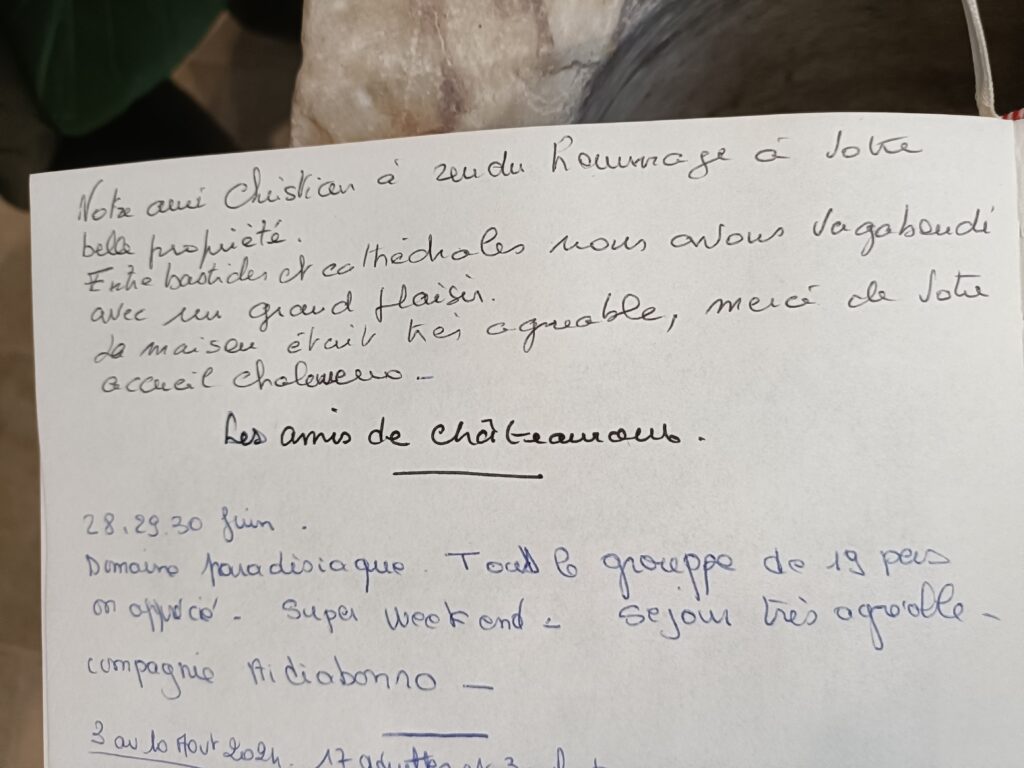 Notre ami Christian à rendu hommage à votre
belle propriété.
Entre bastides et cathédrales nous avons vagabondé
avec un grand plaisir.
La maison était très agréable, merci de votre
accueil chaleureux -
Les amis de
28.29.30 Juin .
Domaine paradisiaque. Tout le grouppe de 19 pers
on apprécié - Super weekend - Sejour très agréable -
compagnie
3 au 10 Aout 2024. 17 adultes et 3